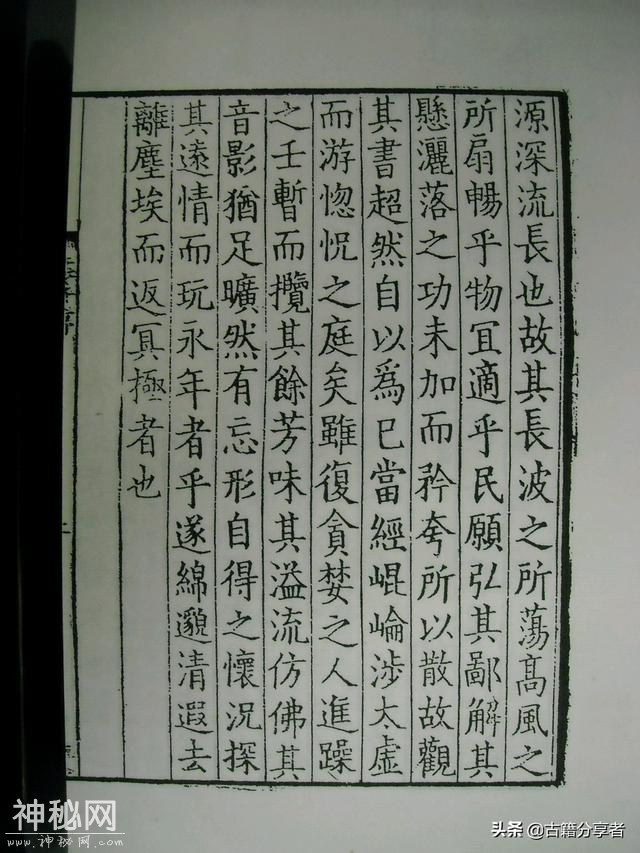 源深流長也故其長波之所蕩髙風之
所扇暢乎物冝適乎民願弘其鄙解其
懸灑落之功未加而矜夸所以散故觀
其書超然自以爲巳當經崐崘渉太虚
而游惚怳之庭矣雖復貪婪之人進躁
之士暫而攬其餘芳味其溢流仿佛其
音影猶足曠然有忘形自得之懷況探
其逺情而玩永年者乎遂綿邈清遐去
離塵埃而返冥極者也
神秘网
www.神秘网.com
头条 @古籍分享者